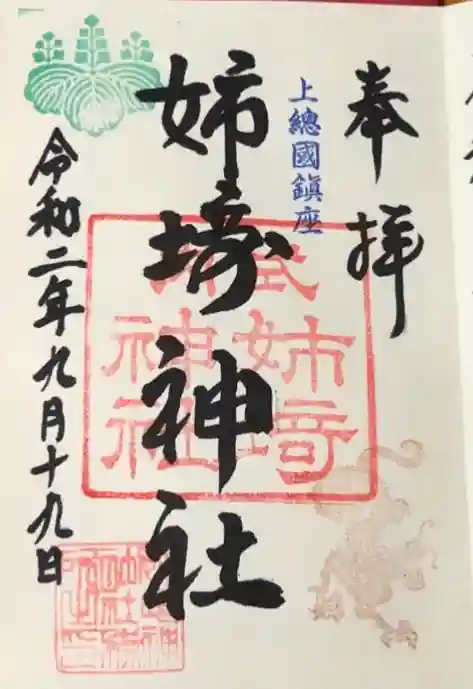 奉拝
上總國鎮座
姉埼神社
令和二年九月十九日
式内
姉埼
神社